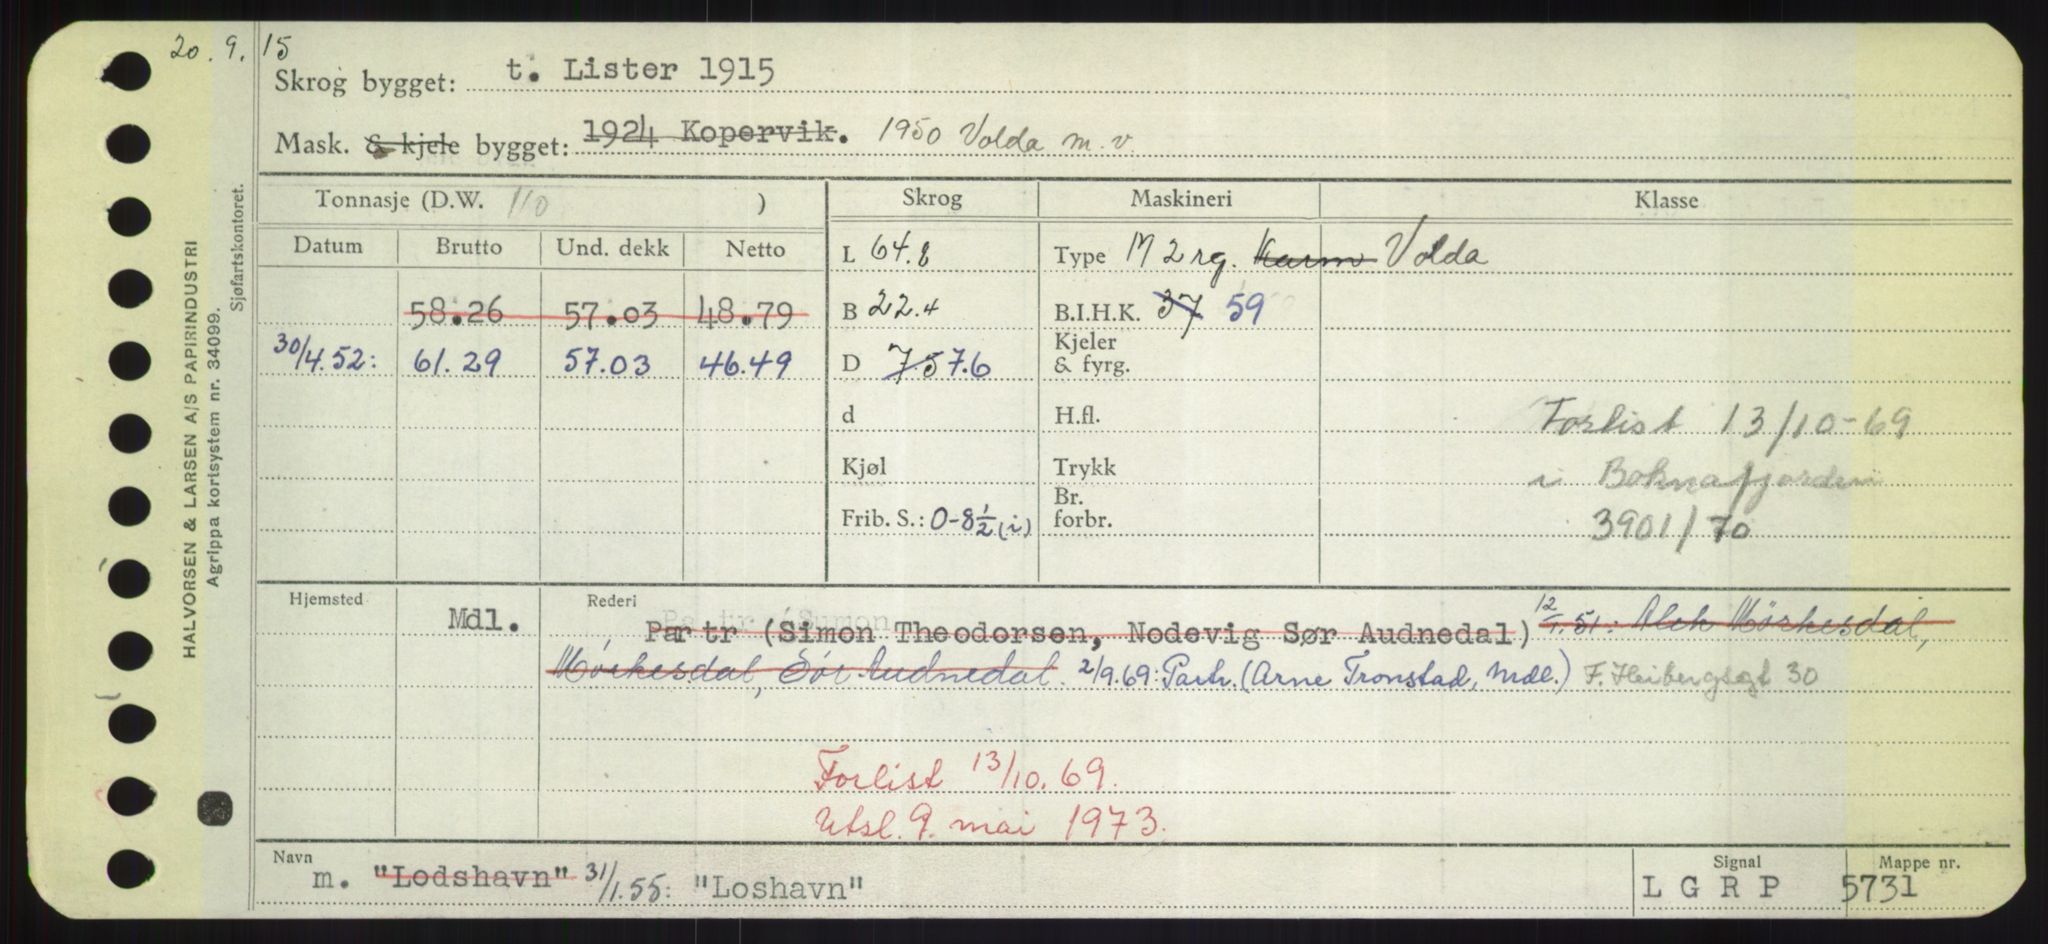 20.9.15
Skrog bygget: t. Lister 1915
Mask. & kjele bygget: 1924 Kopervik. 1950 Volda m.v.
HALVORSEN & LARSEN A/S PAPIRINDUSTRI
Agrippa kortsystem nr. 34099.
Sjøfartskontoret.
Tonnasje (D.W. 110 ) Skrog Maskineri Klasse
Datum Brutto Und. dekk Netto L 64.8 Type M 2 rg. Karm Volda
58.26 57.03 48.79 B 22.4 B.I.H.K. 37 59
30/4.52: 61.29 57.03 46.49 D 7.5 7.6 Kjeler & fyrg.
d H.fl. Forlist 13/10-69
Kjøl Trykk i Boknafjorden
Frib. S.: 0-8½ (i) Br. forbr. 3901/70
Hjemsted Rederi
Mdl. Partr (Simon Theodorsen, Nodevig Sør Audnedal) 12/1.51: Alek Mørkesdal,
Mørkesdal, Sør Audnedal. 2/9.69: Partr. (Arne Tronstad, Mdl.) F. Heibergsgt 30
Forlist 13/10.69.
Utsl. 9. mai 1973.
Navn Signal Mappe nr.
m. "Lodshavn" 31/1.55: "Loshavn" L G R P 5731